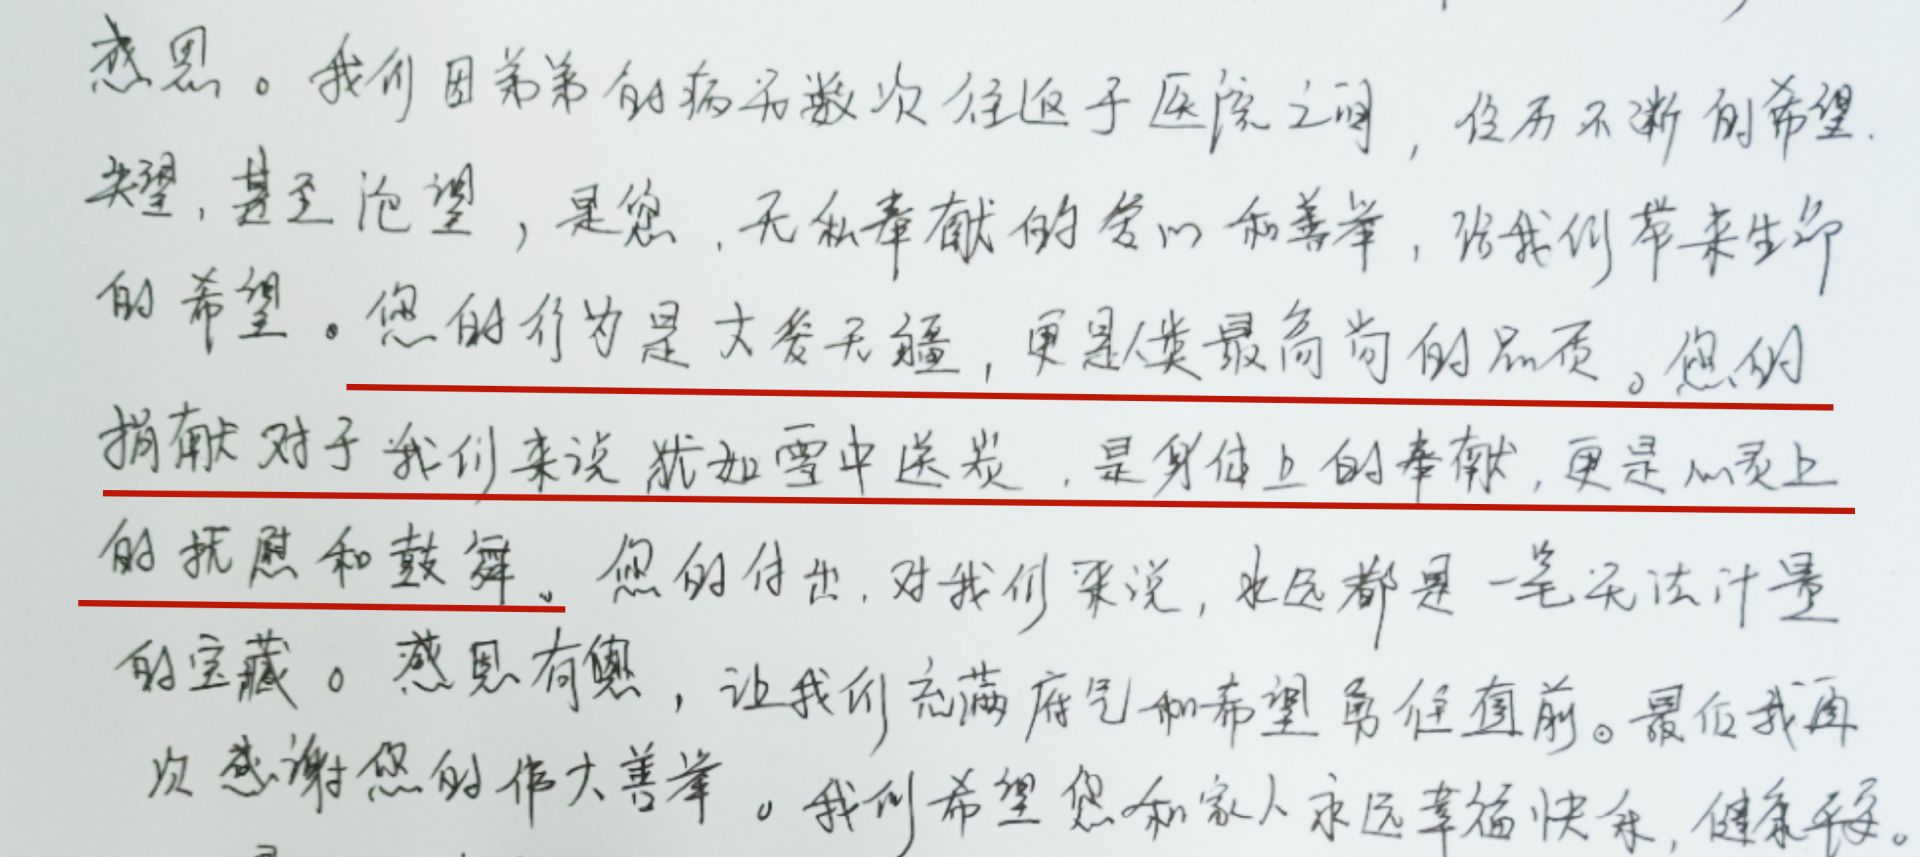 感恩。我们因弟弟的病无数次往返于医院之间，经历不断的希望.
失望，甚至绝望，是您，无私奉献的爱心和善举，给我们带来生命
的希望。您的行为是大爱无疆，更是人类最高尚的品质。您的
捐献对于我们来说犹如雪中送炭，是身体上的奉献，更是心灵上
的抚慰和鼓舞。您的付出，对我们来说，永远都是一笔无法计量
的宝藏。感恩有您，让我们充满底气和希望勇往直前。最后我再
次感谢您的伟大善举。我们希望您和家人永远幸福快乐，健康平安。